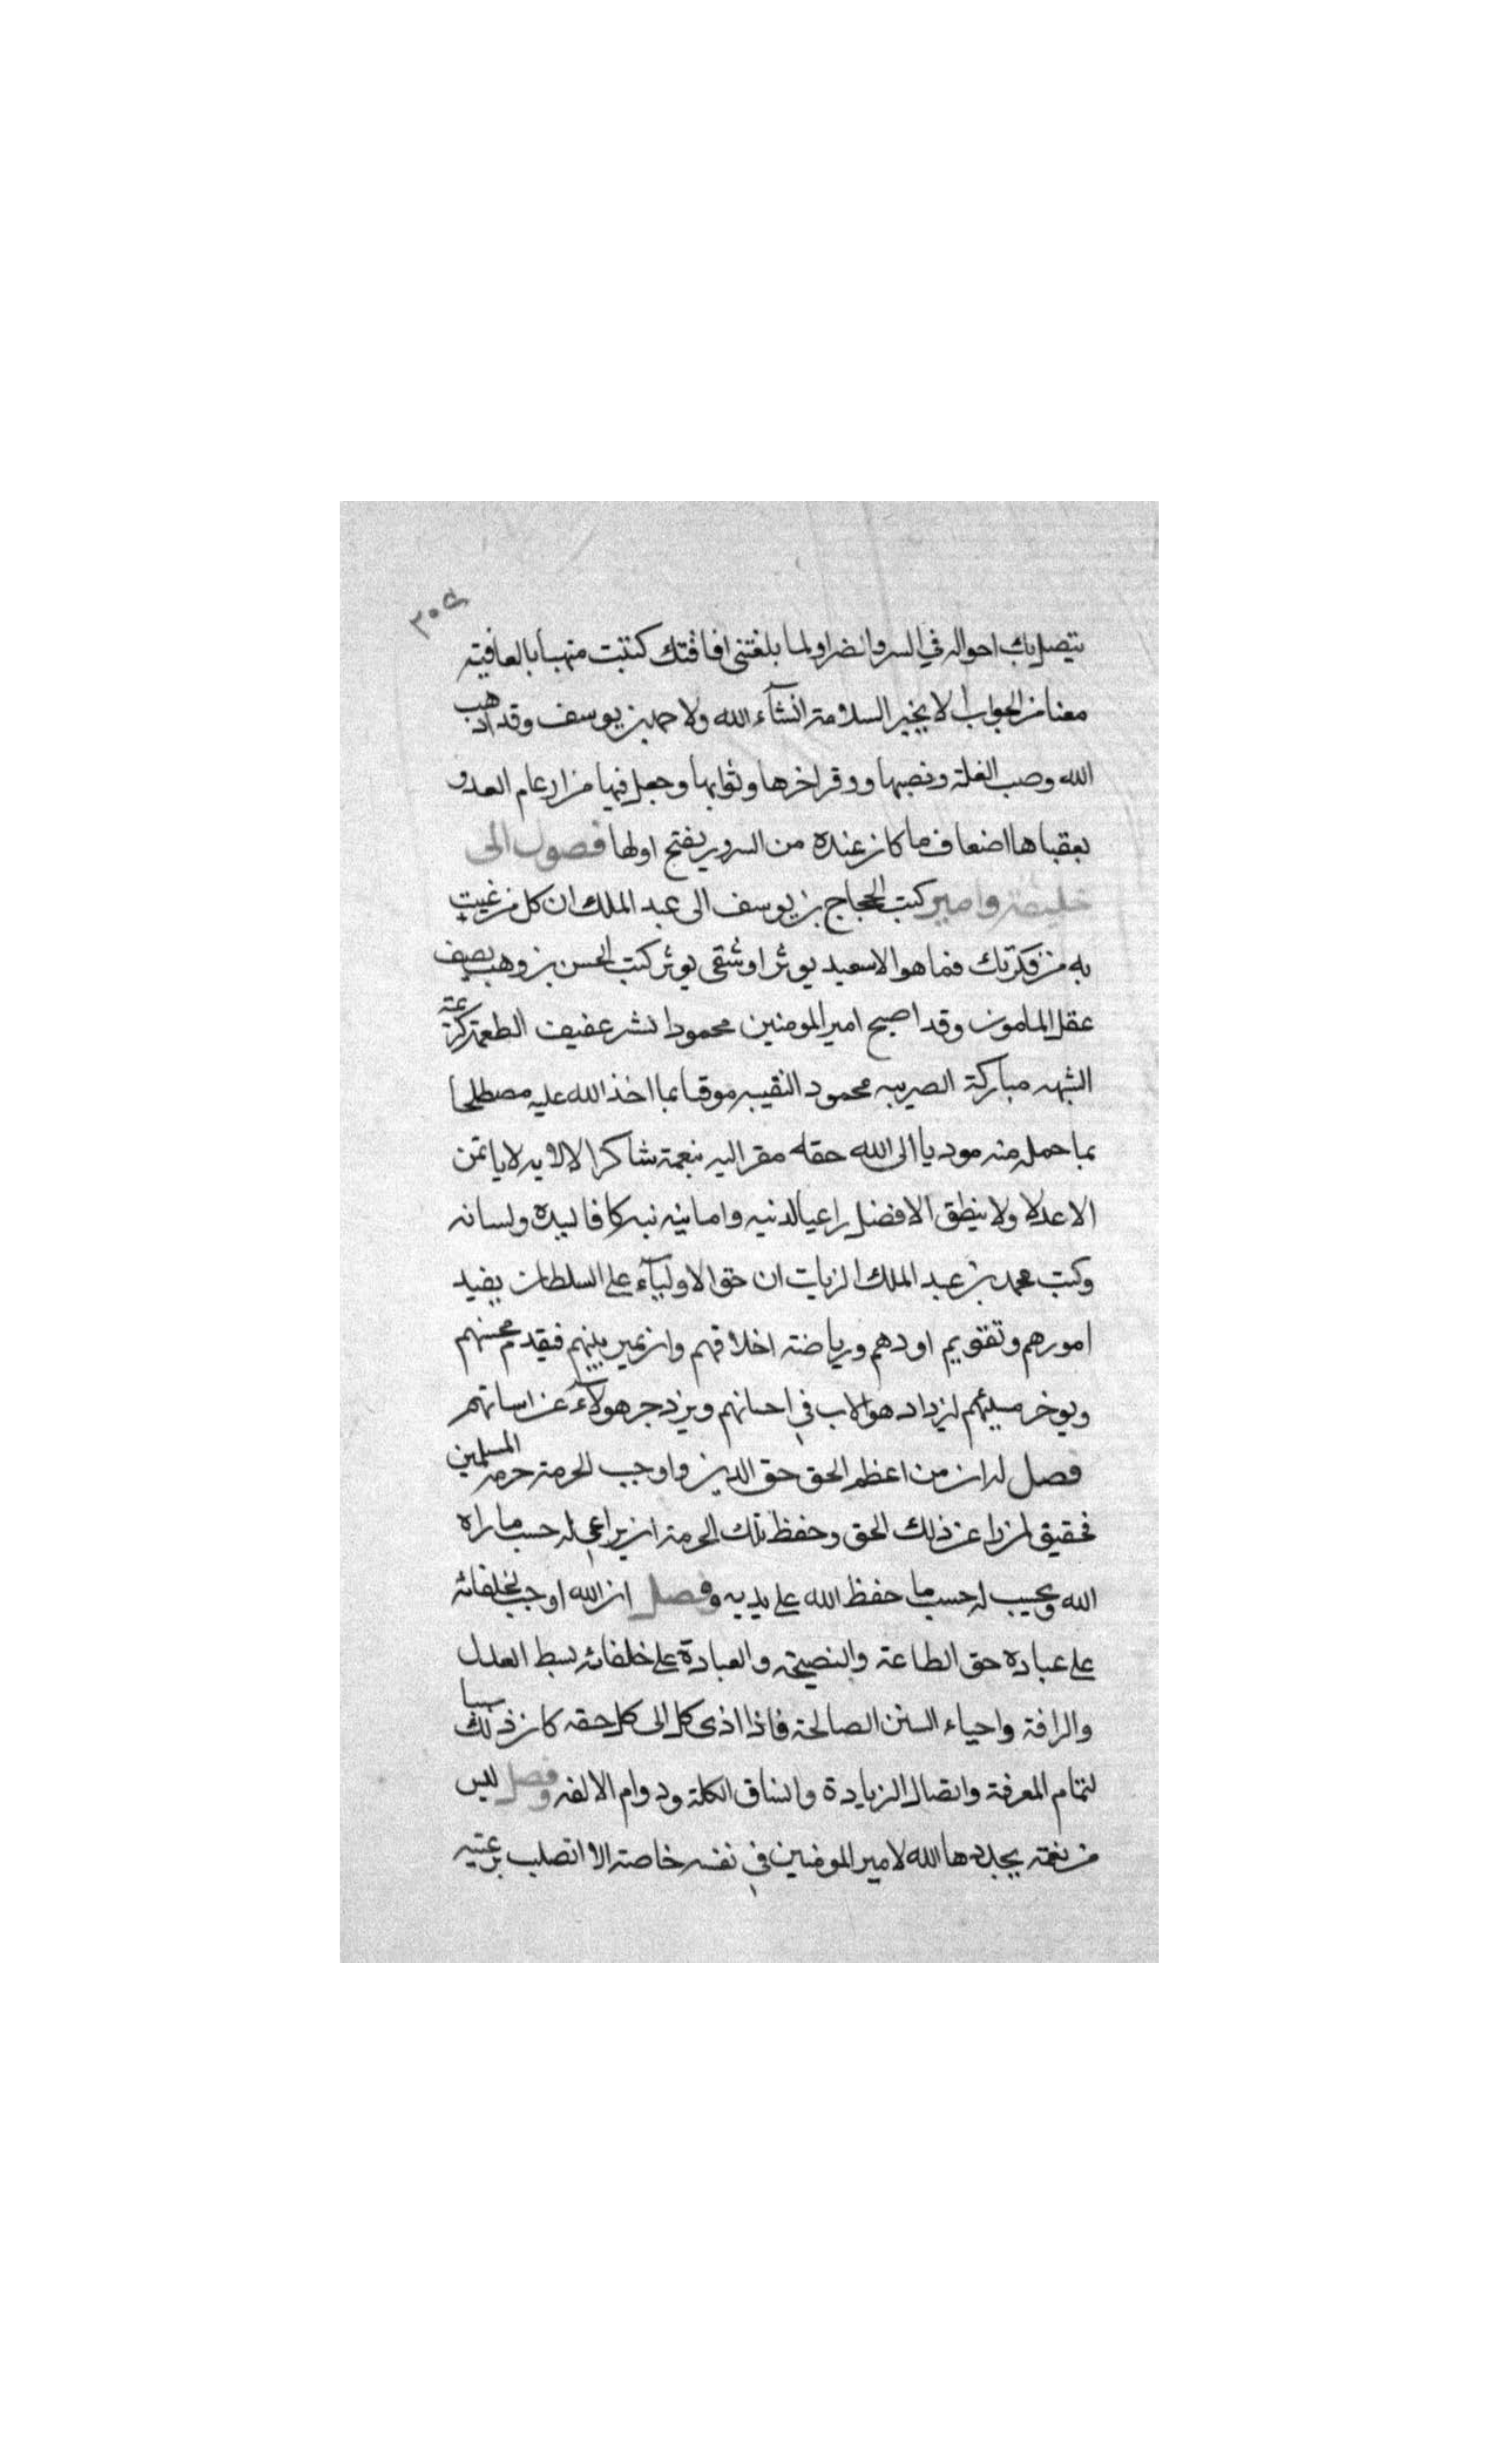 ٣٠٥
يتصل بك احواله في السر والضرا ولما بلغتني افاقتك كتبت مهنيا بالعافية
معنا من الجواب الا بخبر السلامة انشآء الله ولاحمد بن يوسف وقد اذهب
الله وصب العلة ونصبها ووفر اخرها وثوابها وجعل فيها من ارغام العدو
بعقباها اضعاف ما كان عنده من السرور بفتح اولها فصول الى
خليفة وامير كتب الحجاج بن يوسف الى عبد الملك ان كل من غيبت
به من فكرتك فما هو الا سعيد يوثر او شقي يوثر كتب الحسن بن وهب يصف
عقل المامون وقد اصبح امير المومنين محمود عفيف الطعمة
الشهه مباركة الصريبه محمود النقيبه موقيا بما اخذ الله عليه مصطلحا
بما حمل منه موديا الى الله حقه مقرا اليه بنعمة شاكرا لالايه لا ياتمن
الا عدلا ولا ينطق الا فضلا راعيا لدينه وامانته كافا ليده ولسانه
وكتب محمد بن عبد الملك الزيات ان حق الاوليآء على السلطان
امورهم وتقويم اودهم ورياضة اخلاقهم وان يميز بينهم فيقدم محسنهم
ويوخر مسيئهم ليزداد هولاء في احسانهم ويزدجر هولآء عن اساتهم
فصل له ان من اعظم الحق حق الدين واوجب الحرمة حرمة المسلمين
فحقيق لمن راعى ذلك الحق وحفظ تلك الحرمة ان يراعى له حسب ما راه
الله ويجيب له حسب ما حفظ الله على يديه وفصل ان الله اوجب لخلفائه
على عباده حق الطاعة والنصيحة والعبادة على خلفائه بسط العدل
والرافة واحياء السنن الصالحة فاذا ادى كل الى كل حقه كان ذلك سببا
لتمام المعرفة واتصال الزيادة واتساق الكلمة ودوام الالفه وفصل ليس
من نعمة يجددها الله لامير المومنين في نفسه خاصة الا اتصلت برعيته